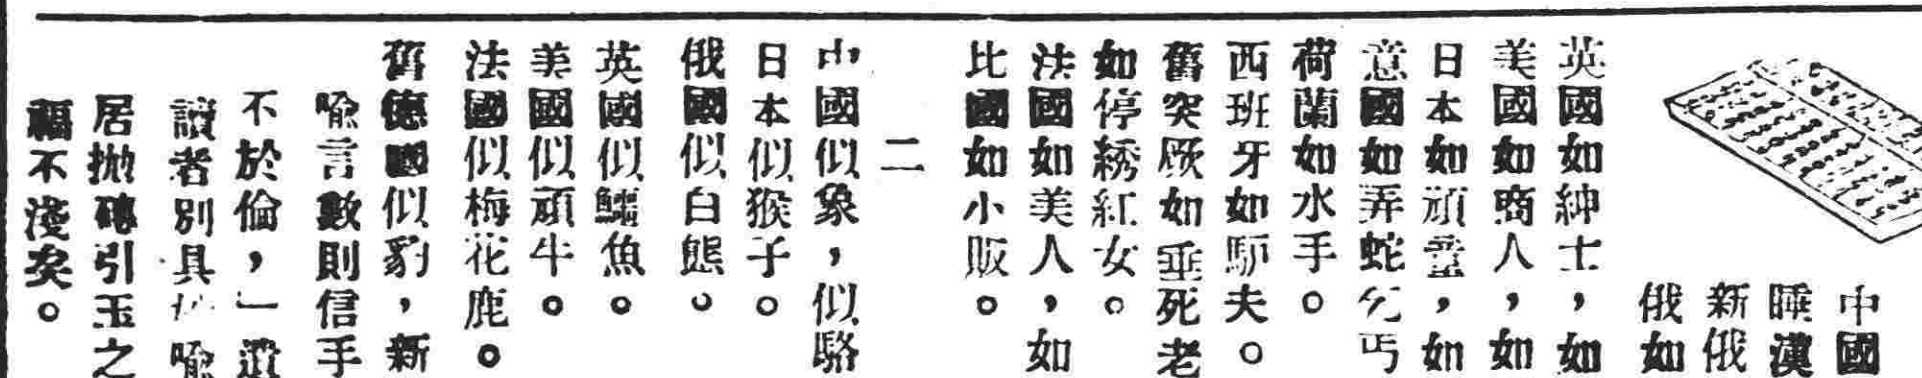 中國
睡漢
新俄
俄如
英國如紳士,如
美國如商人,如
日本如頑童,如
意國如弄蛇乞丐
荷蘭如水手。
西班牙如驢夫。
舊突厥如垂死老
如停綉紅女。
法國如美人,如
比國如小販。
二
中國似象,似駱
日本似猴子。
俄國似白態。
英國似鱷魚。
美國似頑牛。
法國似梅花鹿。
舊德國似豹,新
喩言數則信手
不於倫,」
讀者別具 喩
居拋磚引玉之
福不淺矣。